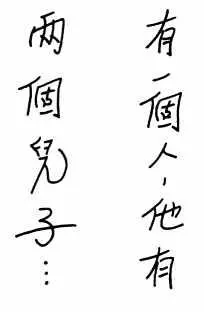 有一個人，他有
兩個兒子…